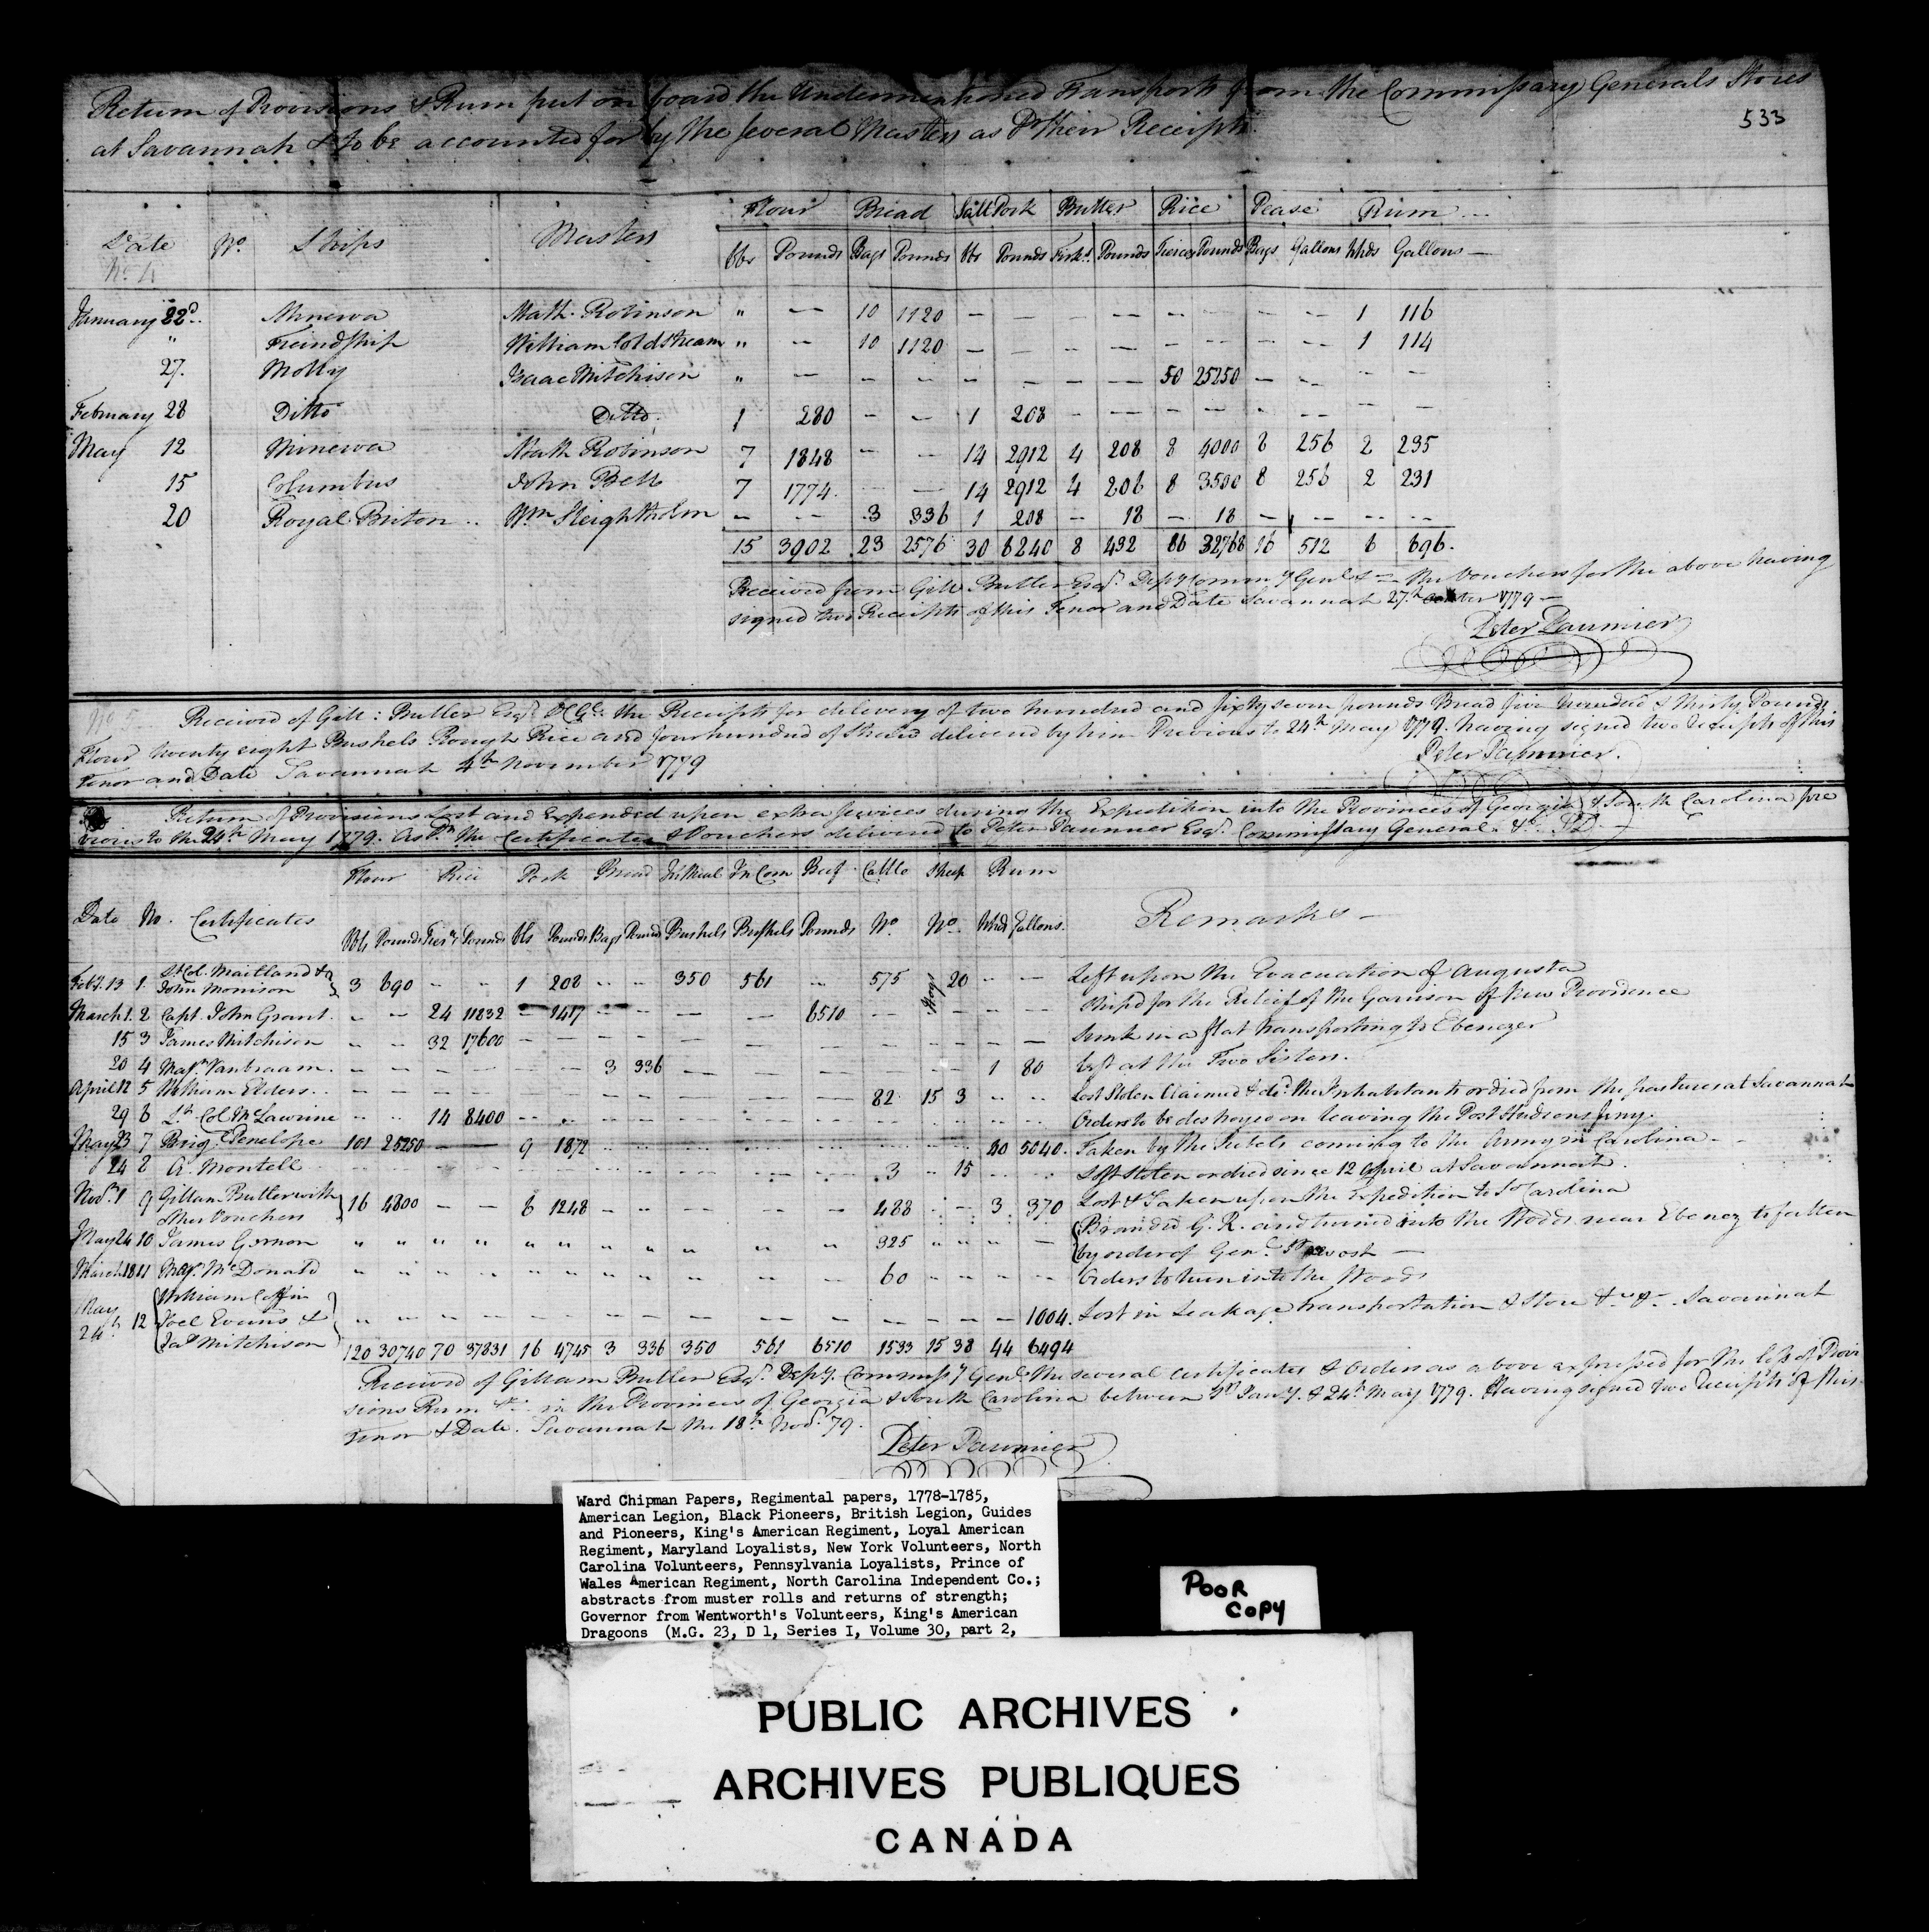 Return of Provisions & Rum put on board the Undermentioned Transports from the Commissary Generals Stores
533
at Savannah & to be accounted for by the several Masters as Pr their Receipts.
Flour Bread Salt Pork Butter Rice Pease Rum
Date No. Ships Masters
No. 4
bbs Pounds Bags Pounds bbs Pounds Firks. Pounds Tierces Pounds Bags Gallons hhds Gallons
January 22d. Minerva Math. Robinson " — 10 1120 — — — — — — — — 1 116
" Friendship William Coldstream " — 10 1120 — — — — — — — — 1 114
27. Molly Isaac Mitchison " — — — — — — — 50 25250 — — — —
February 28 Ditto Ditto. 1 280 — — 1 208 — — — — — — — —
May 12 Minerva Math Robinson 7 1848 — — 14 2912 4 208 8 4000 8 256 2 235
15 Columbus John Bell 7 1774. — — 14 2912 4 206 8 3500 8 256 2 231
20 Royal Briton .. Wm Sleightholm — — 3 336 1 208 — 18 — 18 — — — —
15 3902 23 2576 30 6240 8 432 66 32768 16 512 6 696.
Received from Gill Butler Esqr. Depy Commy Genl &c — the Vouchers for the above having
signed two Receipts of this Tenor and Date Savannah 27th October 1779 —
Peter Paumier
No 5 Received of Gill: Butler Esqr. DCGl: the Receipts for delivery of two hundred and sixty seven pounds Bread five hundred & thirty Pounds
Flour twenty eight Bushels Rough Rice and four hundred of delivered by him Previous to 24th May 1779. having signed two Receipts of this
Tenor and Date Savannah 4th November 1779
Peter Paumier.
Return of Provisions Lost and Expended upon extra Services during the Expedition into the Provinces of Georgia & South Carolina pre
vious to the 24th May 1779. As Pr. the Certificates & Vouchers delivered to Peter Paumier Esqr. Commissary General &c.
Flour Rice Pork Bread In Meal In Corn Beef Cattle Sheep Rum
Date No. Certificates Remarks —
Bbls Pounds Tiers Pounds bbs Pounds Bags Pounds Bushels Bushels Pounds No. No. hhds Gallons.
Feby. 13 1. Lt Col. Maitland &
John Morrison } 3 690 — " 1 208 — — 350 561 — 575 Hogs 20 — — Left upon the Evacuation of Augusta
March 1. 2 Capt. John Grant. — — 24 11832 — 1417 — — — — 6510 — — — — Ship'd for the Relief of the Garrison of New Providence
15 3 James Mitchison — — 32 17600 — — — — — — — — — — — Sunk in a flat transporting to Ebenezer
20 4 Majr. Vanbraam. — — — — — — 3 336 — — — — — 1 80 Left at the Two Sisters.
April 12 5 William Elders.. — — — — — — — — — — — 82 15 3 — — Lost Stolen Claimed &c by the Inhabitants or died from the pastures at Savannah
29 6 Lt Col McLawrine — — 14 8400 — — — — — — — — — — — Orders to be destroyed on leaving the Post Hudsons Ferry.
May 23 7 Brig Penelope 101 25250 — — 9 1872 — — — — — — — 40 5040. Taken by the Rebels coming to the Army in Carolina —
24 8 A. Montell — — — — — — — — — — — 3 " 15 — — Lost Stolen or died since 12 April at Savannah.
Novr. 1 9 Gillam Butler with
other Vouchers } 16 4800 — — 6 1248 — — — — — 488 — — 3 370 Lost & Taken upon the Expedition to So Carolina
May 24 10 James Gornon " " " " " " " " " " " 325 " " " — { Branded G. R. and turned into the Woods near Ebenezr to fatten
by order of Genl. Prevost —
March 18 11 Majr. McDonald " " " " " " " " " " — 60 " " — — Orders to turn into the Woods
May
24th. 12 { William Coffin
Joel Evans &
Jas Mitchison } — — — — — — — — — — — — — — 1004. Lost in Leakage Transportation & Store &c &c — Savannah
120 30740 70 37831 16 4745 3 336 350 561 6510 1533 15 38 44 6494
Received of Gillam Butler Esqr. Depy. Commissy Genl. the several Certificates & Orders as above expressed for the loss of Provi
sions Rum &c in the Provinces of Georgia & South Carolina between Jany. & 24th May 1779. Having signed two Receipts of this
Tenor & Date. Savannah the 18th Novr. 79.
Peter Paumier
Ward Chipman Papers, Regimental papers, 1778-1785,
American Legion, Black Pioneers, British Legion, Guides
and Pioneers, King's American Regiment, Loyal American
Regiment, Maryland Loyalists, New York Volunteers, North
Carolina Volunteers, Pennsylvania Loyalists, Prince of
Wales American Regiment, North Carolina Independent Co.;
abstracts from muster rolls and returns of strength;
Governor from Wentworth's Volunteers, King's American
Dragoons (M.G. 23, D 1, Series I, Volume 30, part 2,
POOR
COPY
PUBLIC ARCHIVES
ARCHIVES PUBLIQUES
CANADA